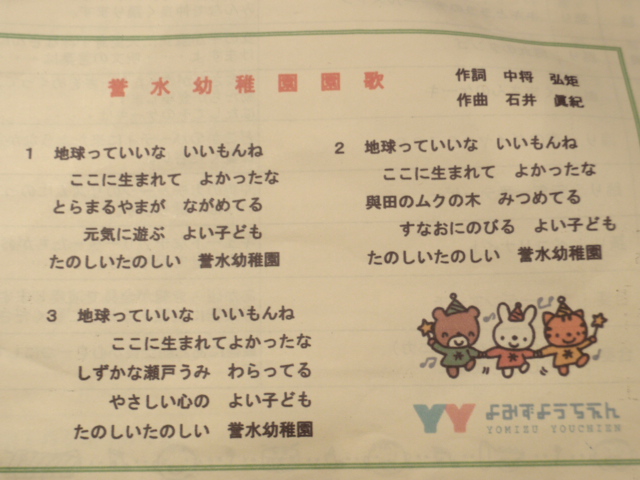 誉水幼稚園園歌
作詞 中将 弘矩
作曲 石井 眞紀
1 地球っていいな いいもんね
ここに生まれて よかったな
とらまるやまが ながめてる
元気に遊ぶ よい子ども
たのしいたのしい 誉水幼稚園
2 地球っていいな いいもんね
ここに生まれて よかったな
與田のムクの木 みつめてる
すなおにのびる よい子ども
たのしいたのしい 誉水幼稚園
3 地球っていいな いいもんね
ここに生まれてよかったな
しずかな瀬戸うみ わらってる
やさしい心の よい子ども
たのしいたのしい 誉水幼稚園
YY よみずようちえん
YOMIZU YOUCHIEN